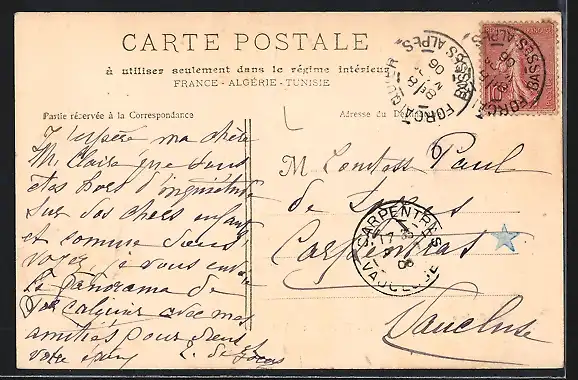 CARTE POSTALE
à utiliser seulement dans le régime intérieur
FRANCE - ALGÉRIE - TUNISIE
Partie réservée à la Correspondance
Adresse du
J'espère ma chère
M. Claire que vous
êtes hors d'inquiétude
sur vos chers enfants
et comme vous
voyez je vous envoie
le panorama de
Forcalquier avec mes
amitiés pour vous
votre
M Comtesse Paul
de
Carpentras
Vaucluse
FORCALQUIER
BASSES ALPES
06
FORCALQUIER
BASSES ALPES
06
CARPENTRAS
VAUCLUSE
10